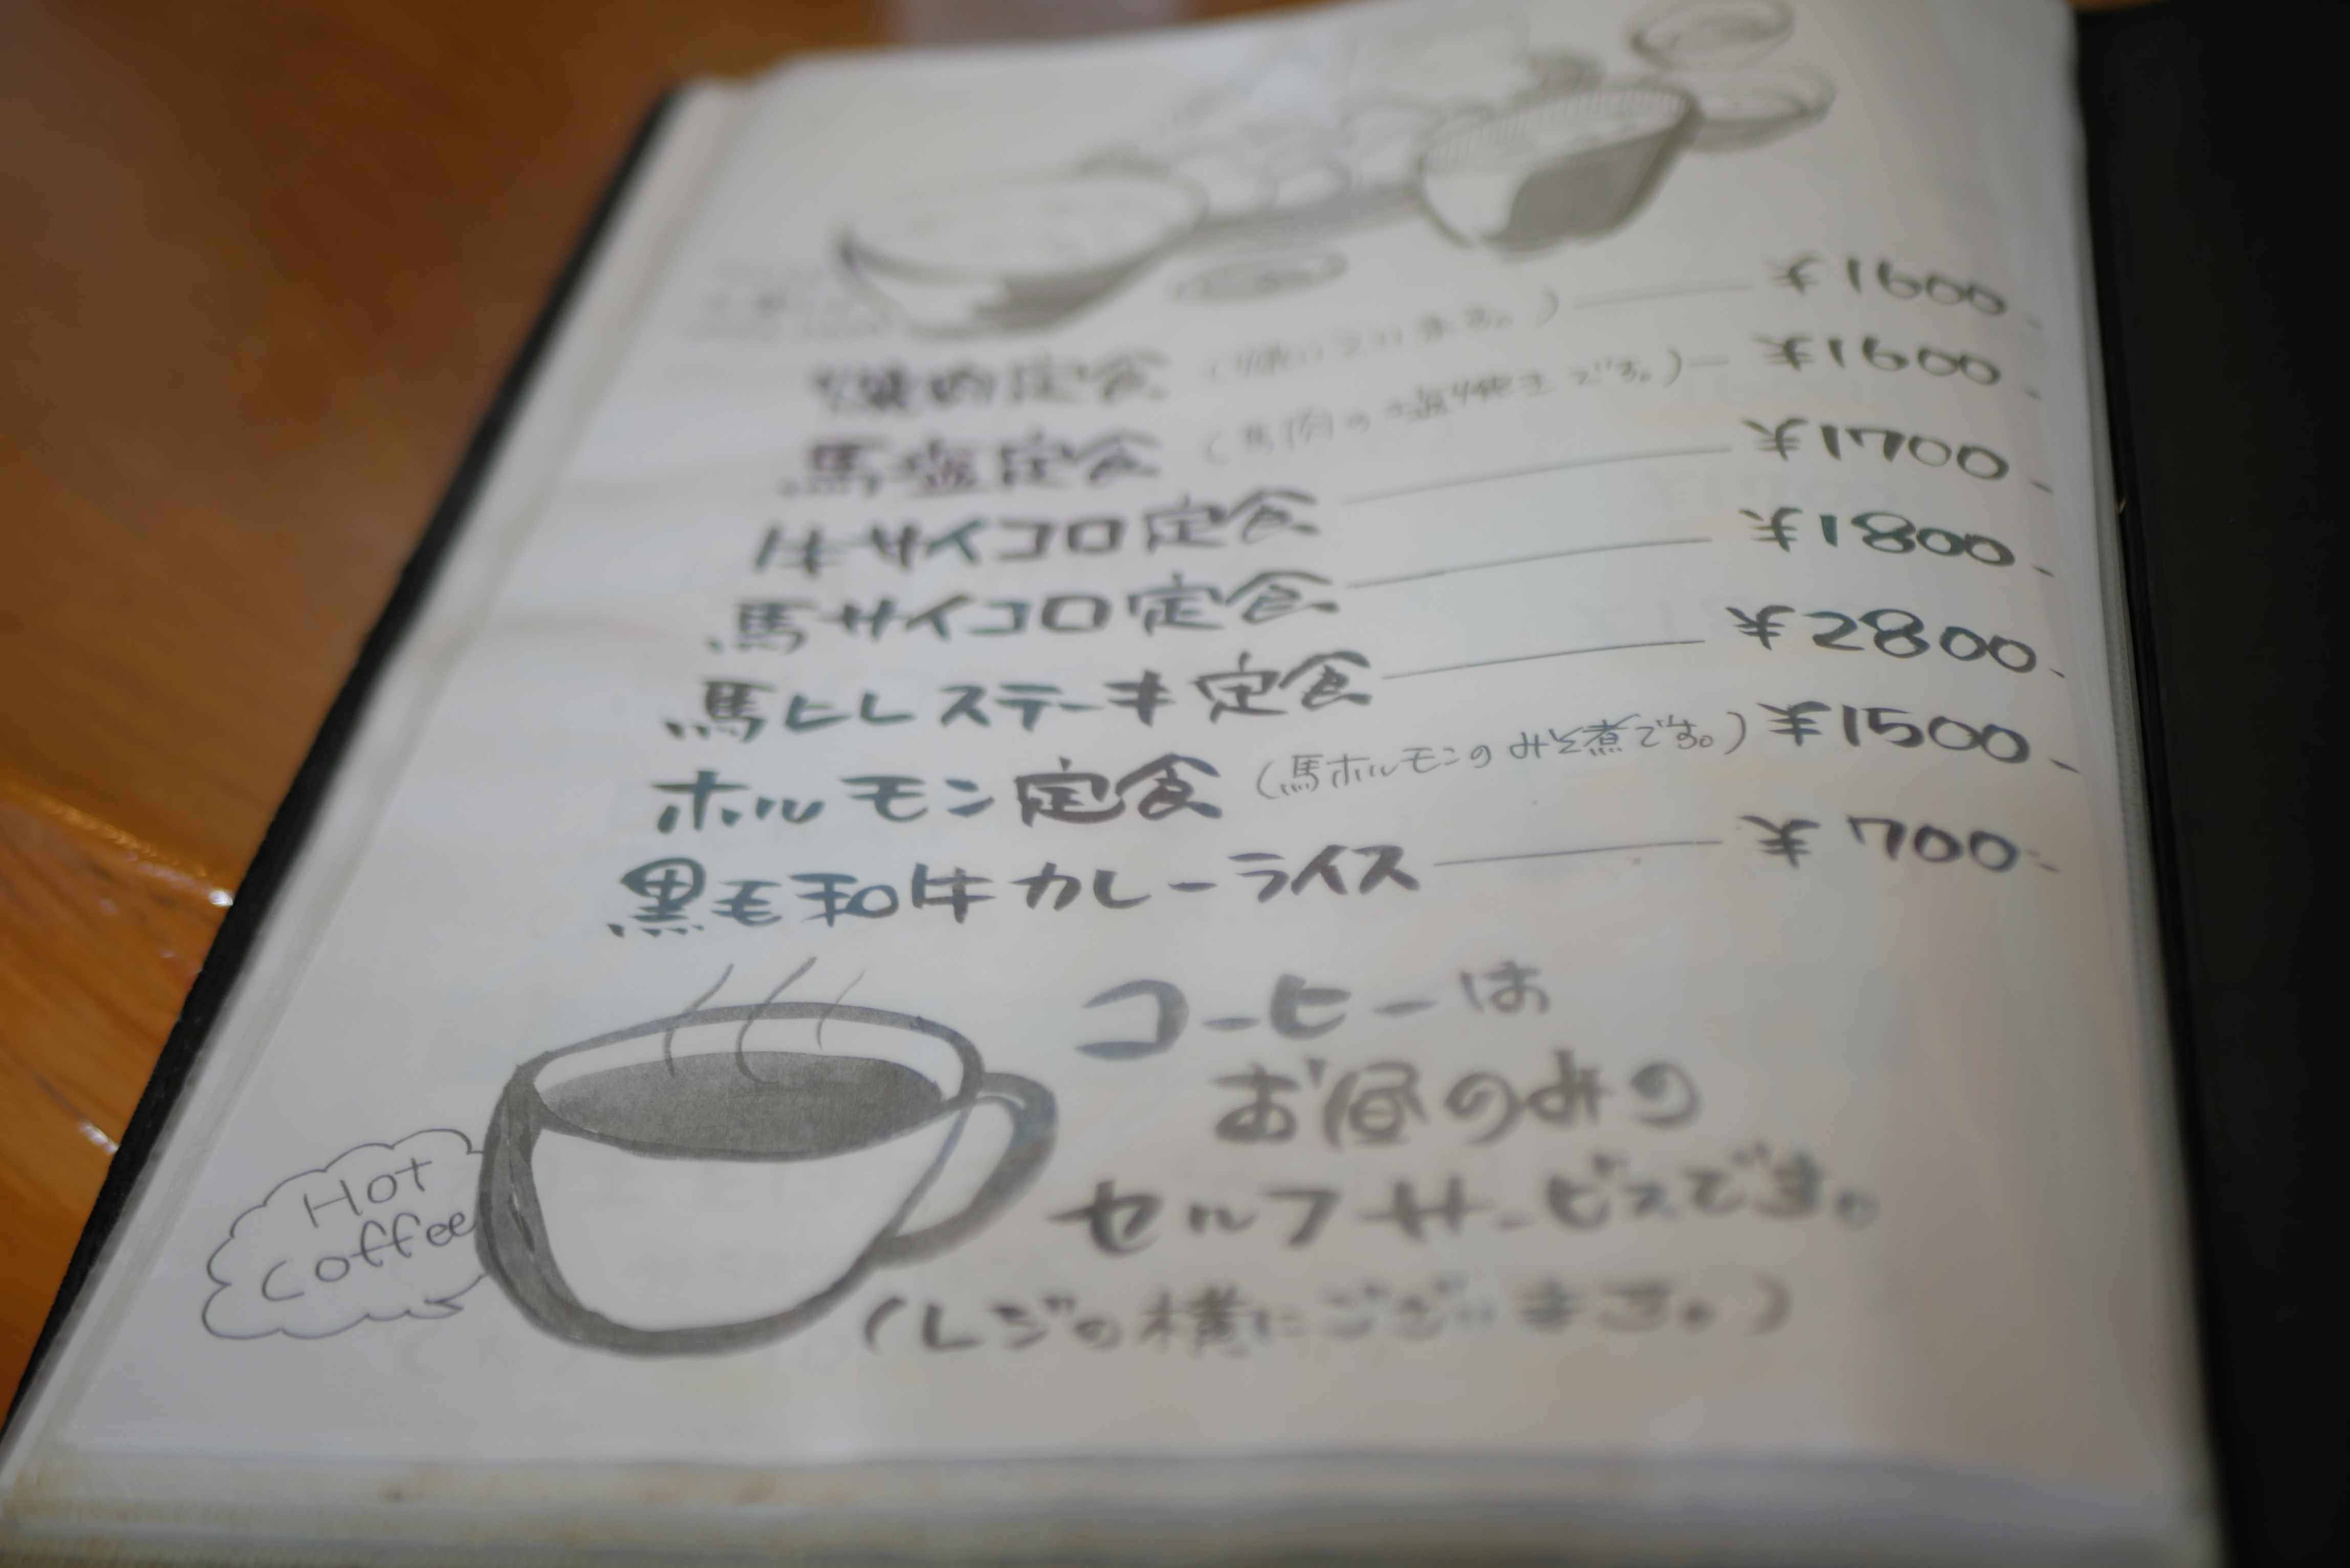 焼肉定食 (焼いています。) ¥1600-
馬塩定食 (馬肉の塩焼きです。) ¥1600-
牛サイコロ定食 ¥1700-
馬サイコロ定食 ¥1800-
馬ヒレステーキ定食 ¥2800-
ホルモン定食 (馬ホルモンのみそ煮です。) ¥1500-
黒毛和牛カレーライス ¥700-
コーヒーは
お昼のみの
セルフサービスです。
(レジの横にございます。)
Hot
Coffee